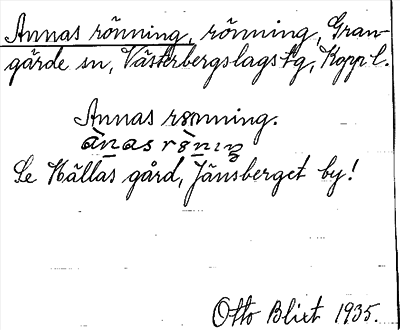 Annas rönning, rönning, Gran-
gärde sn, Västerbergslags tg, Kopp l.
Annas rönning.
Se Hällas gård, Jänsberget by!
Otto Blixt 1935.